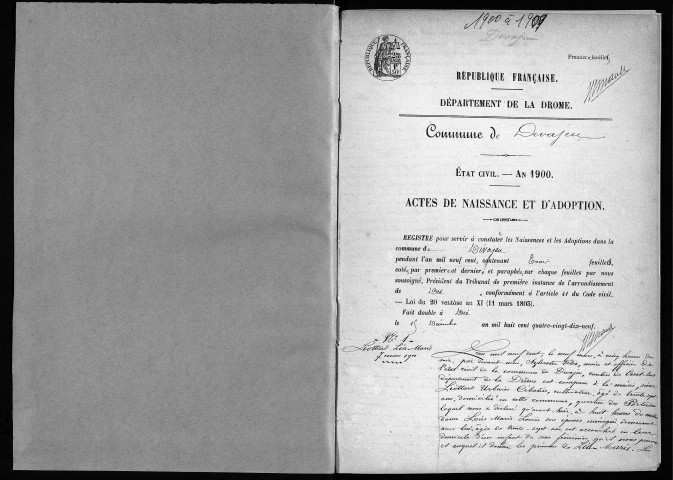 1900 à 1909
Divajeu
Premier feuillet,
RÉPUBLIQUE FRANÇAISE
RÉPUBLIQUE FRANÇAISE.
DÉPARTEMENT DE LA DROME.
Commune de Divajeu
ÉTAT CIVIL. — AN 1900.
ACTES DE NAISSANCE ET D'ADOPTION.
REGISTRE pour servir à constater les Naissances et les Adoptions dans la
commune d Divajeu
pendant l'an mil neuf cent, contenant feuillets,
coté, par premier et dernier, et paraphé, sur chaque feuillet, par nous
soussigné, Président du Tribunal de première instance de l'arrondissement
de Die , conformément à l'article 41 du Code civil.
— Loi du 20 ventôse an XI (11 mars 1803).
Fait double à Die
le 15 Décembre an mil huit cent quatre-vingt-dix-neuf.
N° 1
Marie
L'an mil neuf cent, le neuf mars, à cinq heures du
soir, par devant nous, Sylvestre maire et officier de
l'état civil de la commune de Divajeu, canton de Crest,
département de la Drôme est comparu à la mairie,
Urbain cultivateur, âgé de trente-sept
ans, domicilié en cette commune, quartier des
lequel nous a déclaré qu'avant hier, à huit heures du
dame Marie Louise son épouse ménagère demeurant
avec lui, âgée de trente-sept ans, est accouchée en leur
domicile d'un enfant du sexe féminin, qu'il nous présente
et auquel il donne les prénoms de Marie.